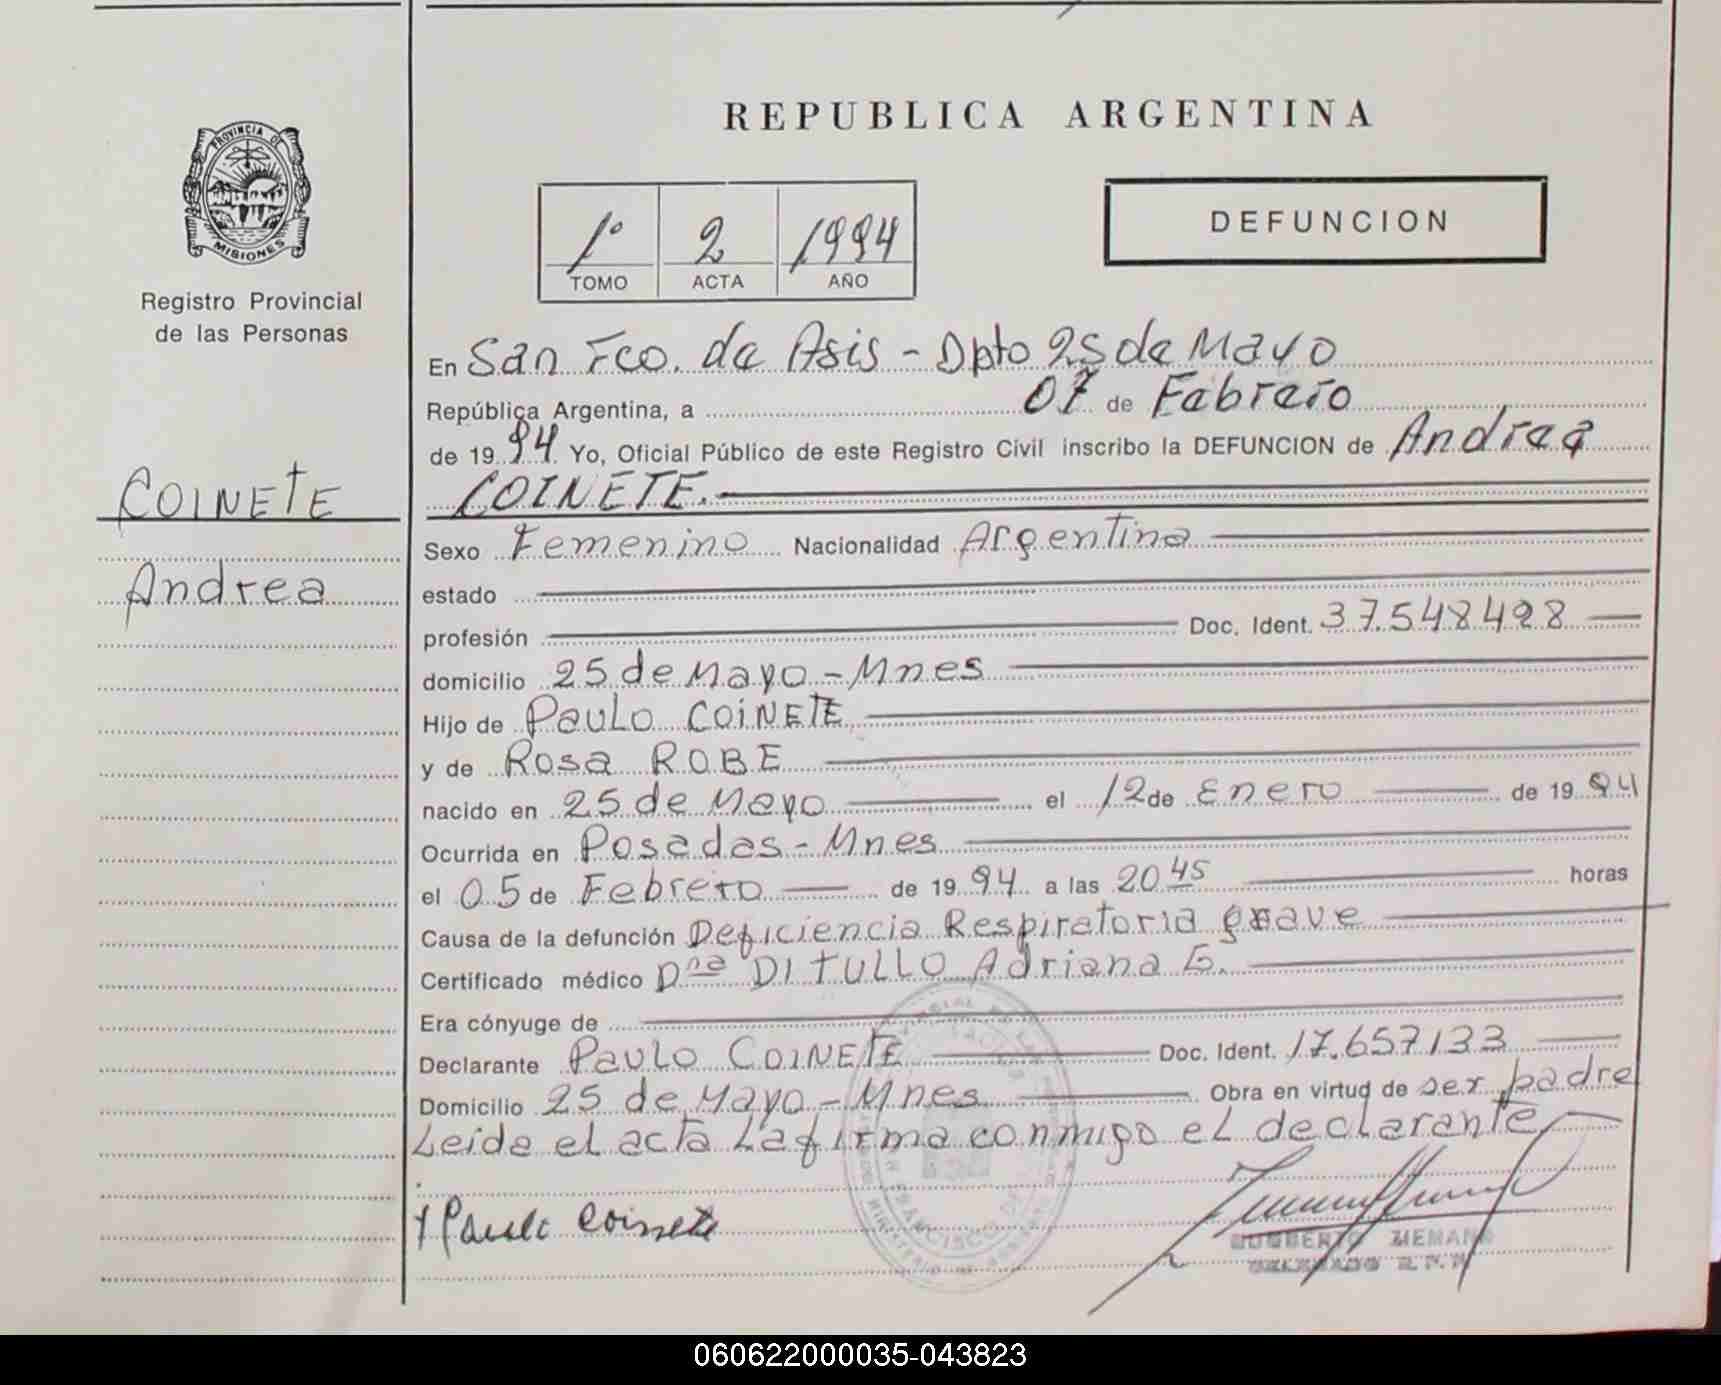 REPUBLICA ARGENTINA
PROVINCIA DE
MISIONES
Registro Provincial
de las Personas
1º 2 1994
TOMO ACTA AÑO
DEFUNCION
En San Fco. de Asis - Dpto 25 de Mayo
República Argentina, a 07 de Febrero
de 1994 Yo, Oficial Público de este Registro Civil inscribo la DEFUNCION de Andrea
COINETE.
COINETE
Andrea
Sexo Femenino Nacionalidad Argentina
estado
profesión Doc. Ident. 37.548428
domicilio 25 de Mayo - Mnes
Hijo de Paulo COINETE
y de Rosa ROBE
nacido en 25 de Mayo el 12 de Enero de 1994
Ocurrida en Posadas - Mnes
el 05 de Febrero de 1994 a las 20 45 horas
Causa de la defunción Deficiencia Respiratoria grave
Certificado médico Dra DI TULLO Adriana G.
Era cónyuge de
Declarante Paulo COINETE Doc. Ident. 17.657133
Domicilio 25 de Mayo - Mnes Obra en virtud de ser padre
Leida el acta La firma conmigo el declarante
Paulo Coinete
060622000035-043823